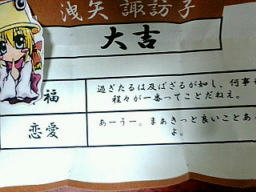 洩矢 諏訪子
大吉
福
過ぎたるは及ばざるが如し、何事も
程々が一番ってことだねぇ。
恋愛
あーうー。まぁきっと良いことあ
よ。